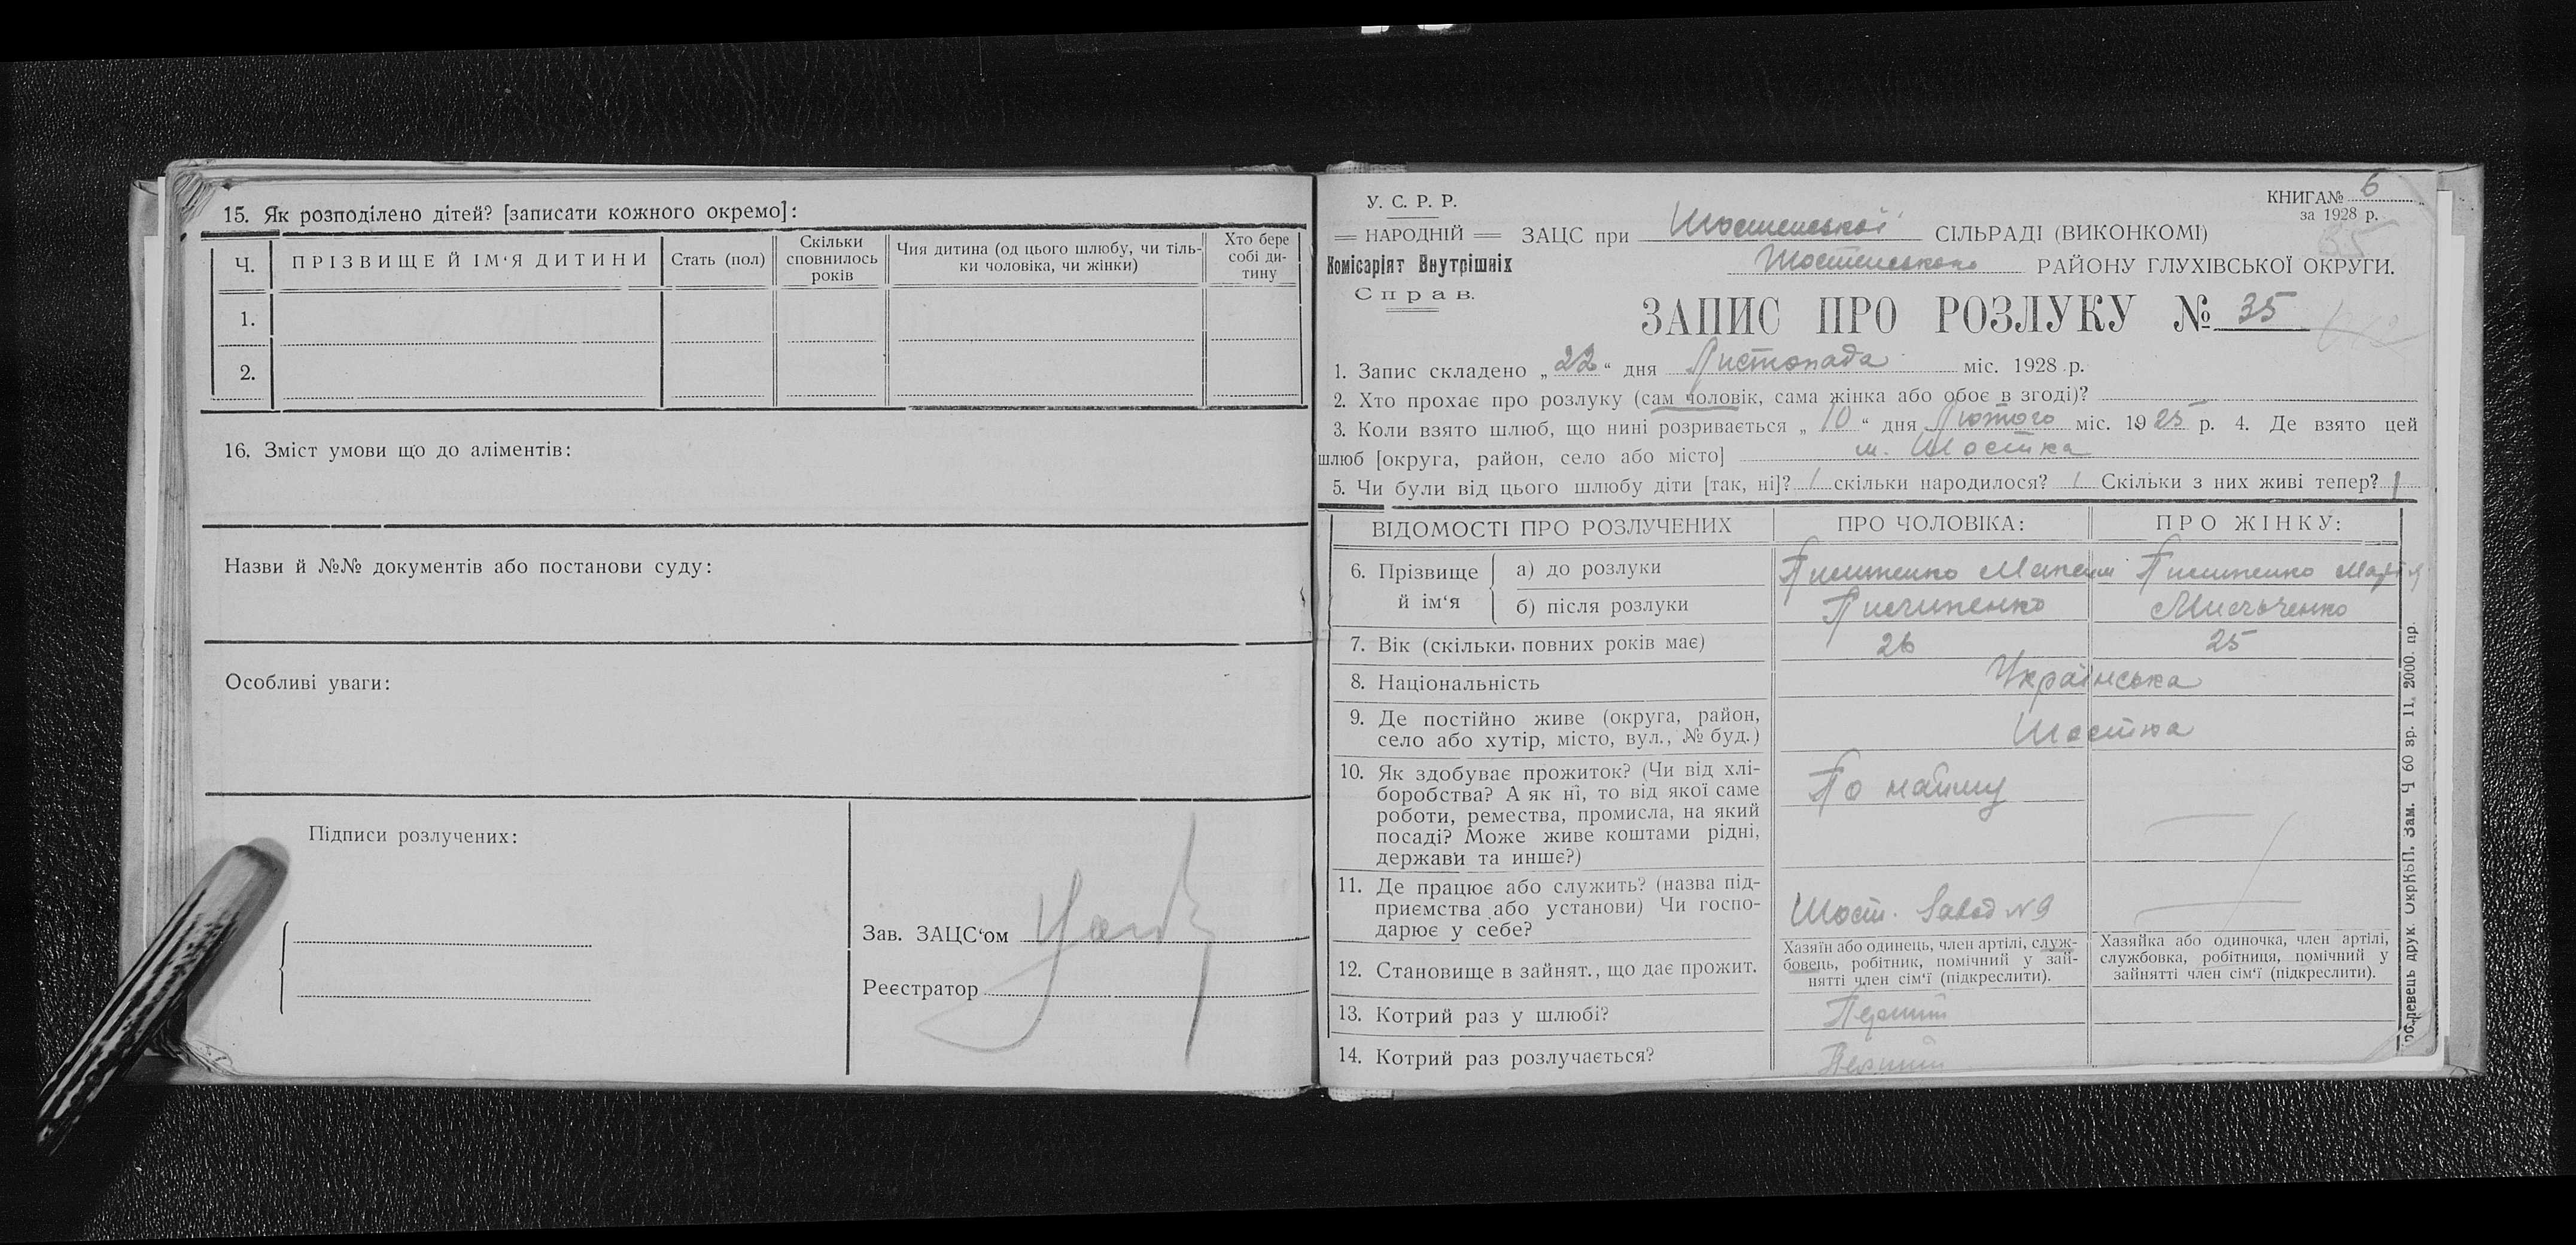 15. Як розподілено дітей? [записати кожного окремо]:
Ч.
ПРІЗВИЩЕ Й ІМ‘Я ДИТИНИ
Стать (пол)
Скільки сповнилось років
Чия дитина (од цього шлюбу, чи тіль-
ки чоловіка, чи жінки)
Хто бере собі ди-
тину
1.
2.
16. Зміст умови що до аліментів:
Назви й №№ документів або постанови суду:
Особливі уваги:
Підписи розлучених:
Зав. ЗАЦС‘ом
Реєстратор
У. С. Р. Р.
НАРОДНІЙ
Комісаріят Внутрішніх
Справ.
КНИГА№ 6
за 1928 р.
ЗАЦС при Шостенської СІЛЬРАДІ (ВИКОНКОМІ)
Шостенського РАЙОНУ ГЛУХІВСЬКОЇ ОКРУГИ.
ЗАПИС ПРО РОЗЛУКУ № 35
1. Запис складено „22“ дня Листопада міс. 1928 р.
2. Хто прохає про розлуку (сам чоловік, сама жінка або обоє в згоді)?
3. Коли взято шлюб, що нині розривається „10“ дня Лютого міс. 1925 р. 4. Де взято цей
шлюб [округа, район, село або місто] м. Шостка
5. Чи були від цього шлюбу діти [так, ні]? 1 скільки народилося? 1 Скільки з них живі тепер? 1
ВІДОМОСТІ ПРО РОЗЛУЧЕНИХ
ПРО ЧОЛОВІКА:
ПРО ЖІНКУ:
6. Прізвище й ім‘я
а) до розлуки
Максим
Марія
б) після розлуки
7. Вік (скільки повних років має)
26
25
8. Національність
Українська
9. Де постійно живе (округа, район,
село або хутір, місто, вул., № буд.)
Шостка
10. Як здобуває прожиток? (Чи від хлі-
боробства? А як ні, то від якої саме
роботи, ремества, промисла, на який
посаді? Може живе коштами рідні,
держави та инше?)
По найму
11. Де працює або служить? (назва під-
приємства або установи) Чи госпо-
дарює у себе?
Шост. Завод №9
12. Становище в зайнят., що дає прожит.
Хазяїн або одинець, член артілі, служ-
бовець, робітник, помічний у зай-
нятті член сім‘ї (підкреслити).
Хазяйка або одиночка, член артілі,
службовка, робітниця, помічний у
зайнятті член сім‘ї (підкреслити).
13. Котрий раз у шлюбі?
Перший
14. Котрий раз розлучається?
Перший
друк. ОкрКБП. Зам. Ч 60 зр. 11, 2000. пр.